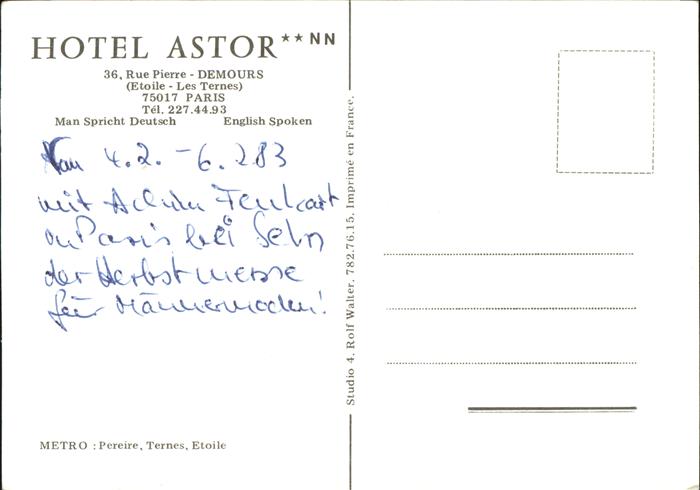 HOTEL ASTOR ★★ NN
36, Rue Pierre - DEMOURS
(Etoile - Les Ternes)
75017 PARIS
Tél. 227.44.93
Man Spricht Deutsch English Spoken
4.2. - 6.2 83
mit Achim
in Paris bei
der Herbstmesse
für Männermoden!
METRO : Pereire, Ternes, Etoile
Studio 4, Rolf Walter, 782.76.15. Imprimé en France.